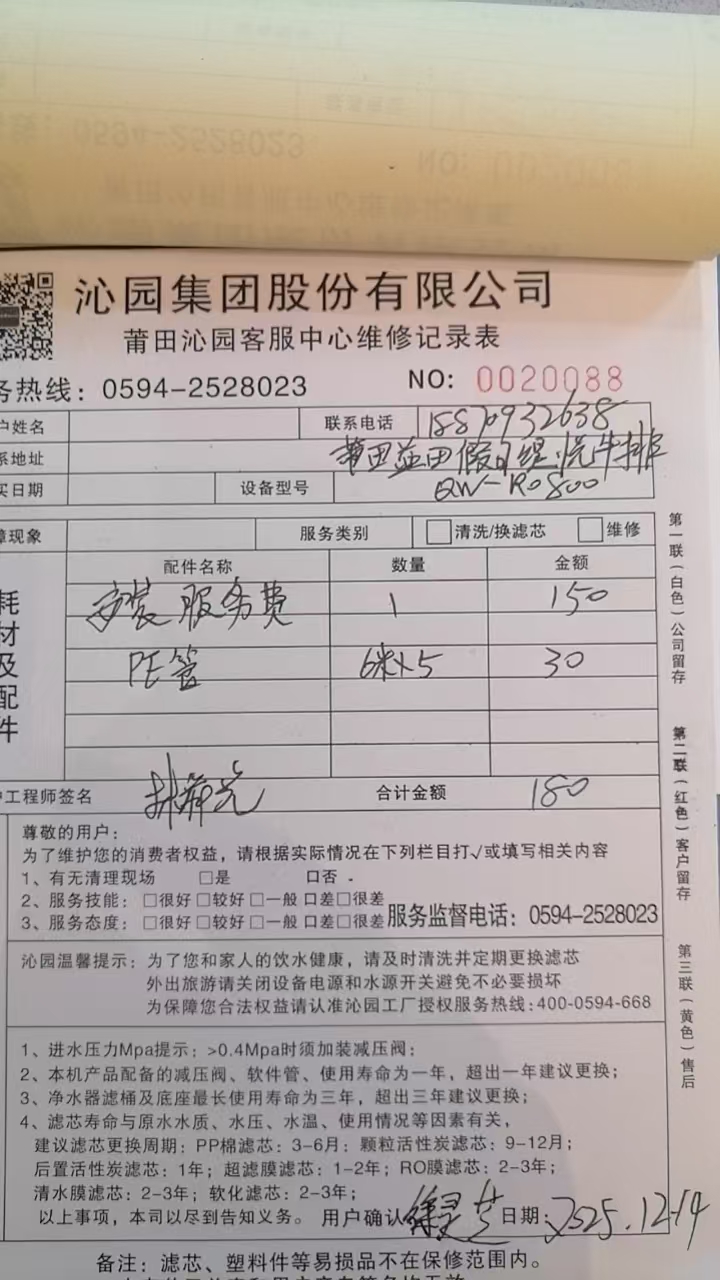 0594-2528023
NO: 0020088
沁园集团股份有限公司
莆田沁园客服中心维修记录表
务热线：0594-2528023 NO: 0020088
户姓名 联系电话 18870932638
系地址 莆田益田假日 牛排
买日期 设备型号 QW-R0800
障现象 服务类别 清洗/换滤芯 维修
耗材及配件
配件名称 数量 金额
安装服务费 1 150
PE管 6米×5 30
护工程师签名 合计金额 180
第一联（白色）公司留存
第二联（红色）客户留存
第三联（黄色）售后
尊敬的用户：
为了维护您的消费者权益，请根据实际情况在下列栏目打√或填写相关内容
1、有无清理现场 □是 口否 .
2、服务技能：□很好□较好□一般 口差□很差
3、服务态度：□很好□较好□一般 口差□很差 服务监督电话：0594-2528023
沁园温馨提示：为了您和家人的饮水健康，请及时清洗并定期更换滤芯
外出旅游请关闭设备电源和水源开关避免不必要损坏
为保障您合法权益请认准沁园工厂授权服务热线：400-0594-668
1、进水压力Mpa提示：>0.4Mpa时须加装减压阀；
2、本机产品配备的减压阀、软件管、使用寿命为一年，超出一年建议更换；
3、净水器滤桶及底座最长使用寿命为三年，超出三年建议更换；
4、滤芯寿命与原水水质、水压、水温、使用情况等因素有关，
建议滤芯更换周期：PP棉滤芯：3-6月；颗粒活性炭滤芯：9-12月；
后置活性炭滤芯：1年；超滤膜滤芯：1-2年；RO膜滤芯：2-3年；
清水膜滤芯：2-3年；软化滤芯：2-3年；
以上事项，本司以尽到告知义务。用户确认 徐灵芝 日期：2025.12.14
备注：滤芯、塑料件等易损品不在保修范围内。